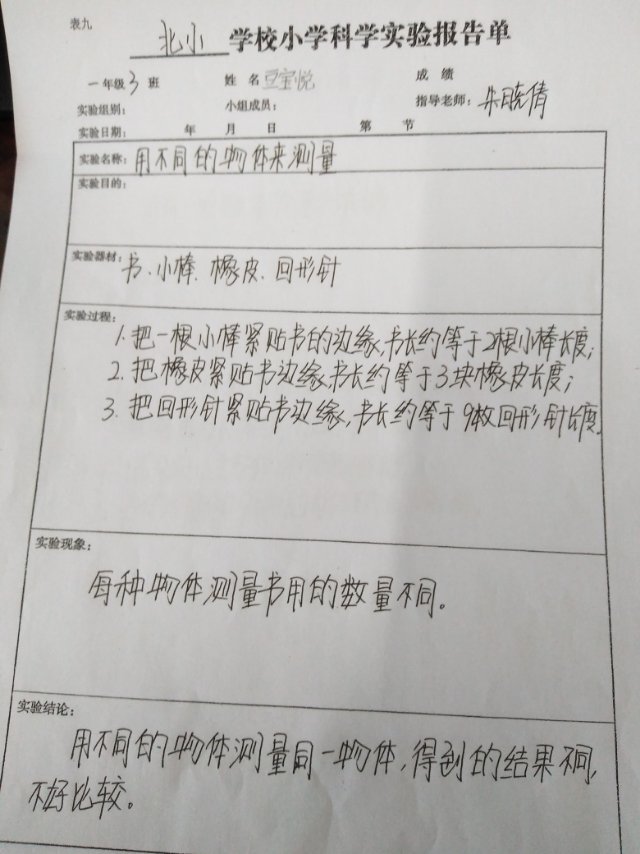 表九
北小 学校小学科学实验报告单
一年级 3 班 姓 名 豆宝悦 成 绩
实验组别: 小组成员: 指导老师: 朱晓倩
实验日期: 年 月 日 第 节
实验名称: 用不同的物体来测量
实验目的:
实验器材: 书、小棒、橡皮、回形针
实验过程:
1. 把一根小棒紧贴书的边缘,书长约等于2根小棒长度;
2. 把橡皮紧贴书边缘,书长约等于3块橡皮长度;
3. 把回形针紧贴书边缘,书长约等于9枚回形针长度。
实验现象:
每种物体测量书用的数量不同。
实验结论:
用不同的物体测量同一物体,得到的结果不同,
不好比较。